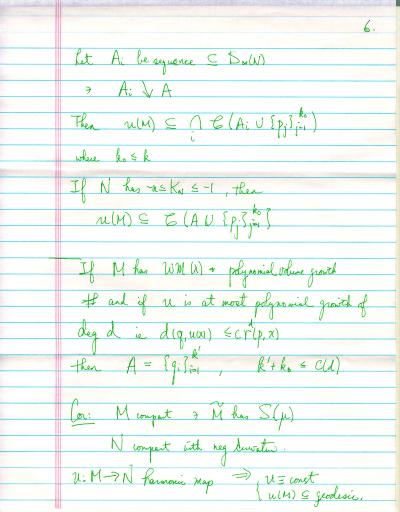 6.
Let Ai be sequence ⊆ D∞(N)
∋ Ai ↓ A
Then u(M) ⊆ ⋂_i C(Ai ∪ {pj}_{j=1}^{k0})
where k0 ≤ k
If N has -a ≤ K_N ≤ -1, then
u(M) ⊆ C(A ∪ {pj}_{j=1}^{k0}}
If M has WM(λ) + polynomial volume growth
# and if u is at most polynomial growth of
deg d ie d(q,u(x)) ≤ c r^d(p,x)
then A = {qi}_{i=1}^{k'}, k'+k0 ≤ C(d)
Cor: M compact ∋ M̃ has S(μ)
N compact with neg curvature.
u: M→N harmonic map ⟹ { u ≡ const
u(M) ⊆ geodesic.